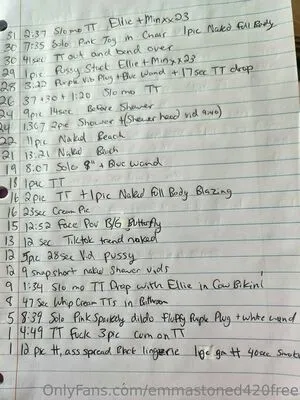 31 2:37 Slo mo TT Ellie + Minxx23
30 7:35 Solo Pink Toy in Chair 1pic Naked Full Body
30 41sec TT out and bend over
29 1pic Pussy Shot Ellie + Minxx23
28 8:22 Purple Vib Plug + Blue Wand + 17 sec TT drop
26 37 + 30 + 1:20 Slo mo TT
24 9pic 14sec Before Shower
24 13:07 2pic Shower + (Shower head vid 9:40)
22 11pic Naked Beach
21 13:21 Naked Beach
19 8:07 Solo 8" + Blue wand
18 1pic TT
16 2pic TT + 1pic Naked Full Body Blazing
16 23sec Cream Pie
15 12:52 Face Pov B/G Butterfly
13 12 sec Tiktok trend naked
12 5pic 28sec Vid pussy
12 9 snap short naked Shower vids
9 1:34 Slo mo TT Drop with Ellie in Cow Bikini
8 47 sec Whip Cream TTs in Bathroom
5 8:39 Solo Pink Sparkely dildo Fluffy Purple Plug + white wand
1 4:49 TT Fuck 3pic cum on TT
1 12 pic tt, ass spread Black lingerie 40sec smoke
OnlyFans.com/emmastoned420free